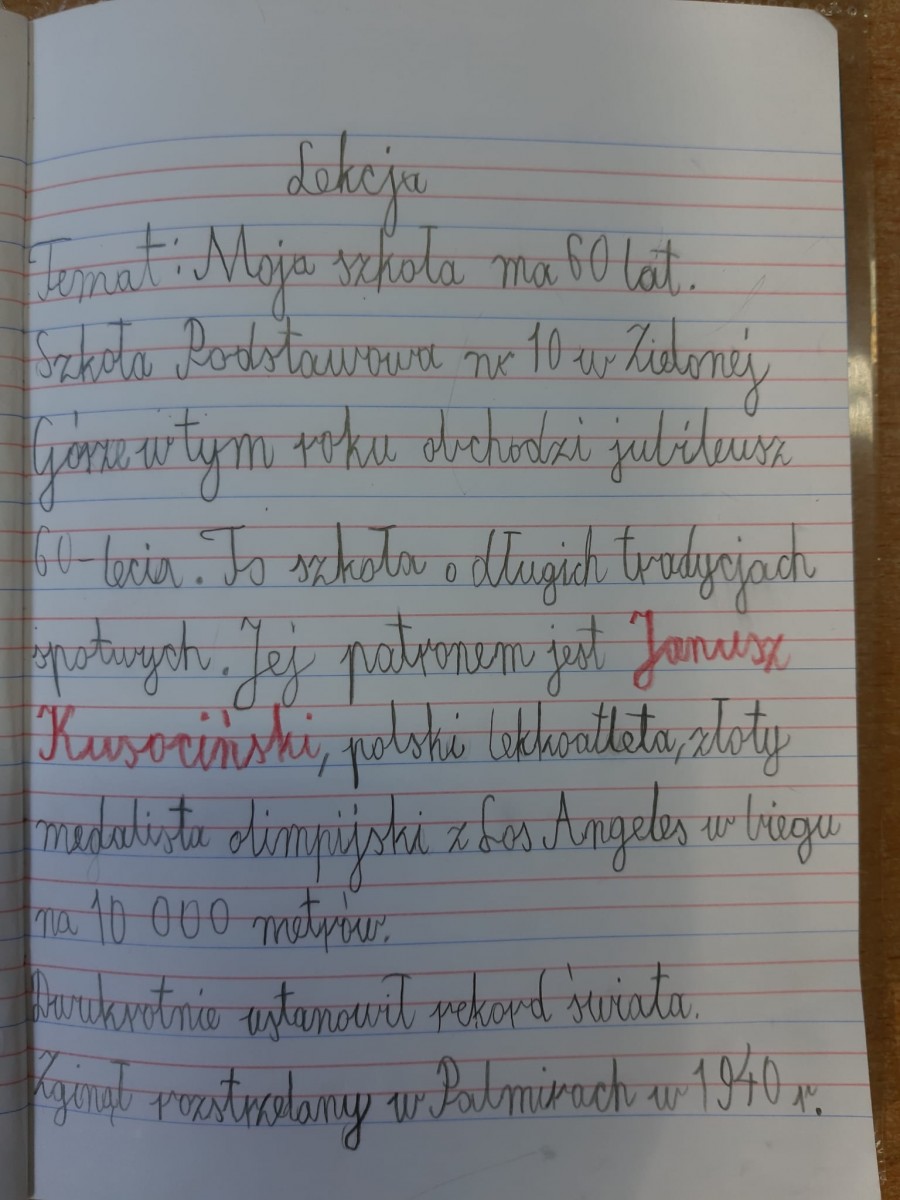 Lekcja
Temat: Moja szkoła ma 60 lat.
Szkoła Podstawowa nr 10 w Zielonej
Górze w tym roku obchodzi jubileusz
60-lecia. To szkoła o długich tradycjach
spotwych. Jej patronem jest Janusz
Kusociński, polski lekkoatleta, złoty
medalista olimpijski z Los Angeles w biegu
na 10 000 metrów.
Dwukrotnie ustanowił rekord świata.
Zginął rozstrzelany w Palmirach w 1940 r.